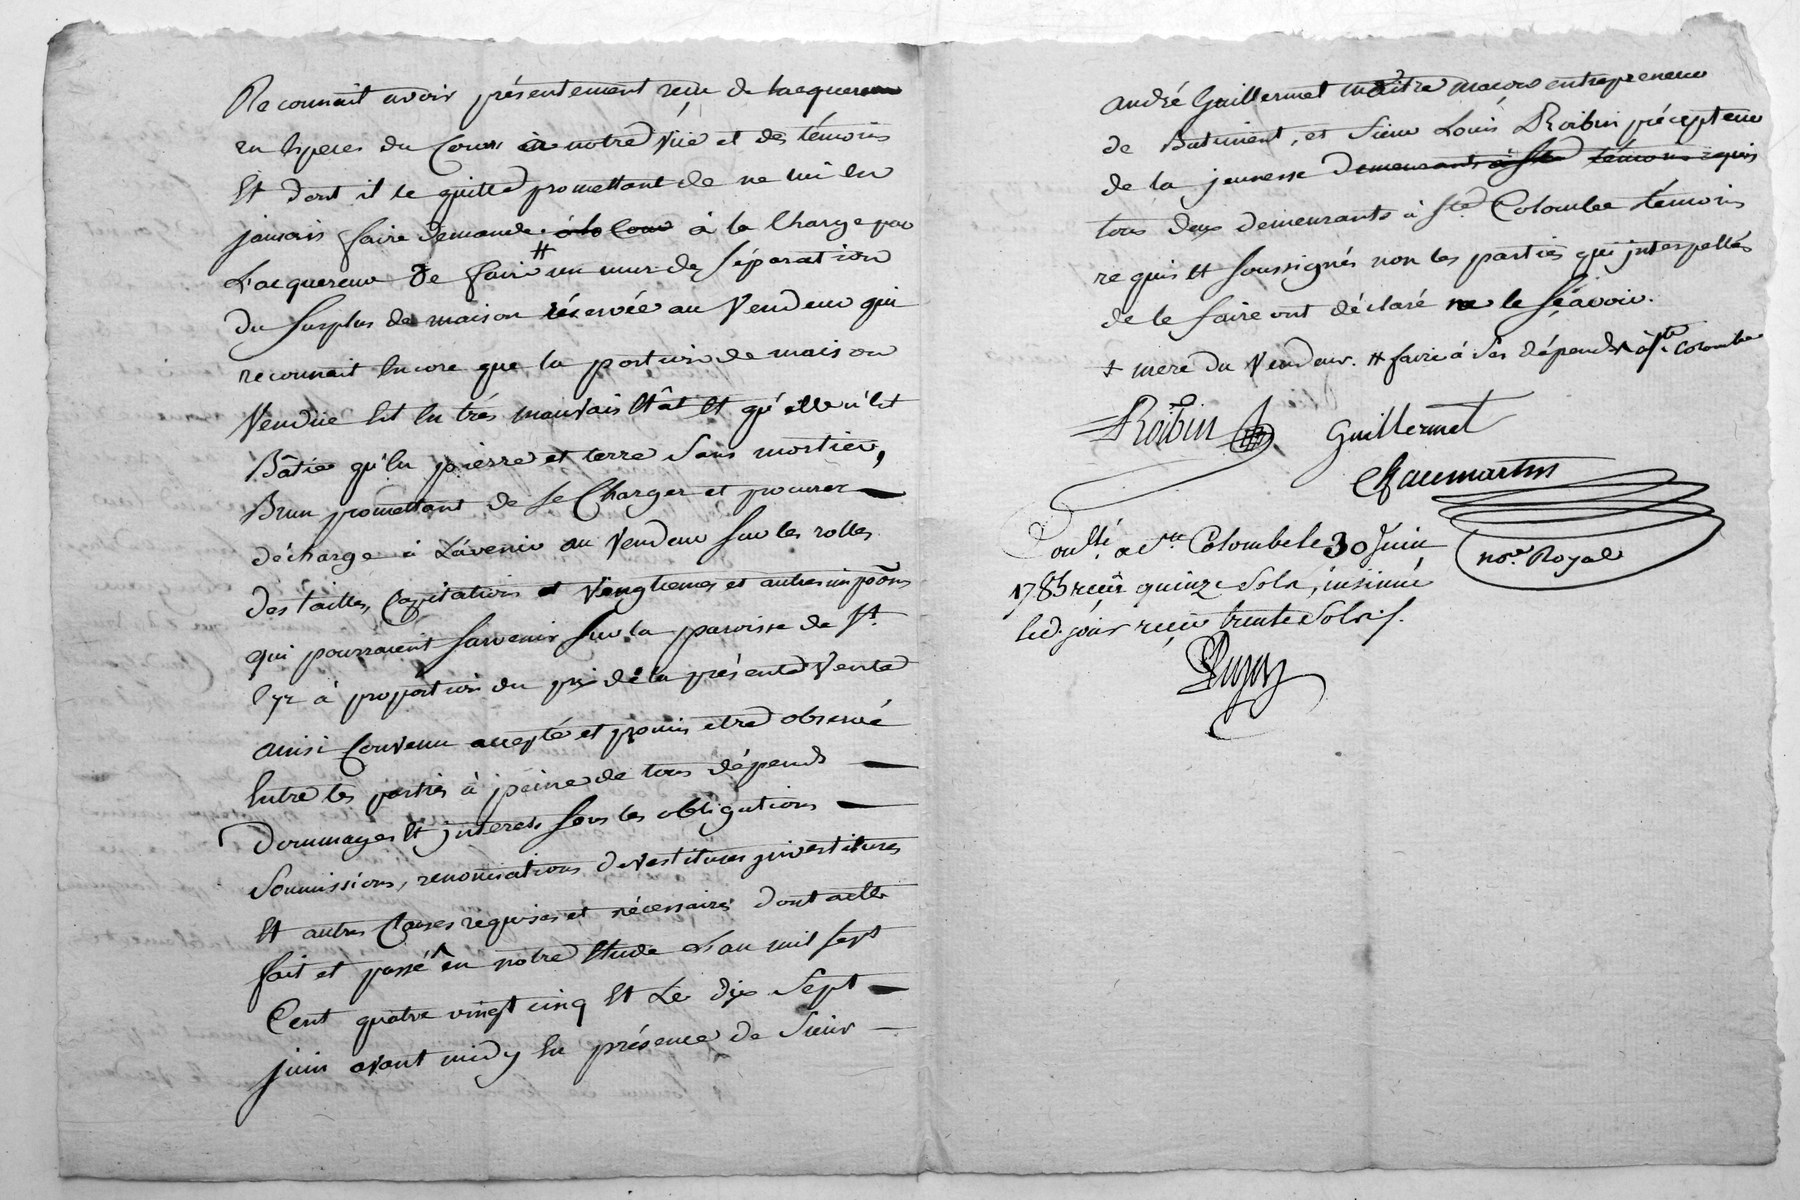 Reconnait avoir présentement reçu de lacquereur
en Especes du Cours à notre vüe et des témoins
Et dont il le quitte promettant de ne lui en
jamais faire demande. à la Cour à la Charge par
L'acquereur de faire # un mur de Séparation
du Surplus de maison réservée au Vendeur qui
reconnait Encore que la portion de maison
Vendüe Est En très mauvais Etât Et qu'elle n'Est
Bâtie qu'En pierre et terre Sans mortier,
Brun promettant de Se Charger et procurer
décharge à L'avenir au Vendeur Sur les rolles
des tailles, Capitations et vingtiemes et autres impõons
qui pourraient Survenir Sur la paroisse de St.
Cyr à proportion du prix de la présente Vente
ainsi Convenu accepté et promis etre observé
Entre les parties à peine de tous dépends
Dommages Et interets Sous les obligations
Soumissions, renonciations devestitures investitures
Et autres Clauses requises et nécessaires dont acte
fait et passé ^ en notre Etude L'an mil Sept
Cent quatre vingt cinq Et Le dix Sept
juin avant midy En présence de Sieur
André Guillermet maître macon entrepreneur
de Batiment, et Sieur Louis Roibin précepteur
de la jeunesse demeurants à Ste témoins requis
tous deux demeurants à Ste. Colombe témoins
requis Et Soussignés non les parties qui interpellés
de le faire ont déclaré ne le Sçavoir.
+ mere du Vendeur. # faire à Ses dépends ^ à Ste Colombe
Roibin Guillermet
Chaumartin
nore. Royal
Conllé. a Ste Colombe le 30 Juin
1785 reçu quinze Sols, insinué
led. jour reçu trente Sols